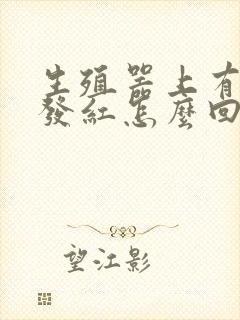 生殖器上有
發紅怎麼回
望江影